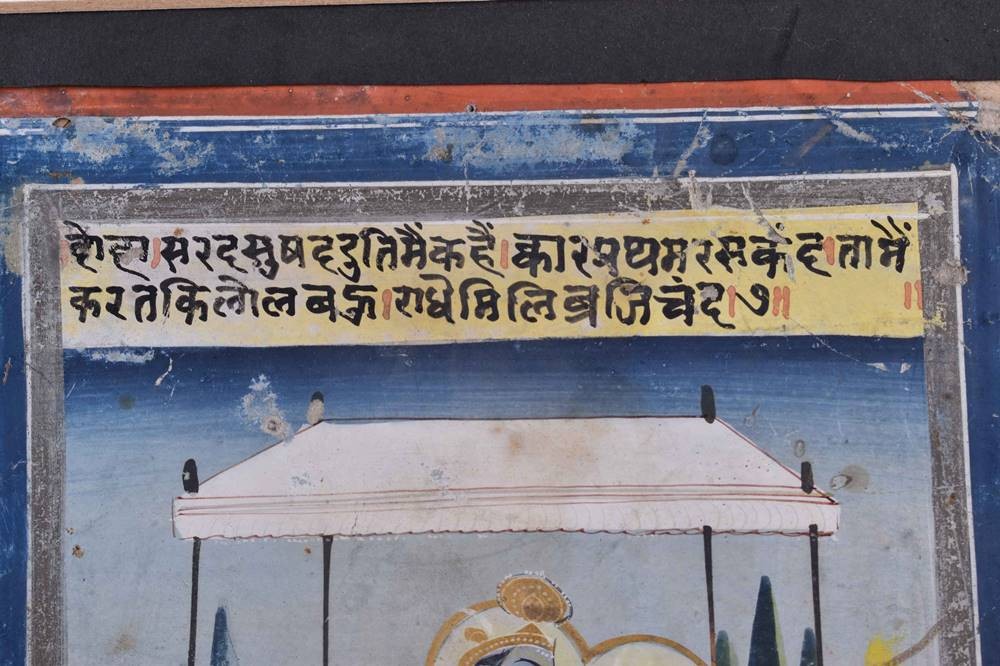 दोहा।सरदसुषददुतिमैंकहैं।कारप्रथमरसकंद।तामैं
करतकिलोलबहु।राधेमिलिब्रजिचंद।७॥ ॥